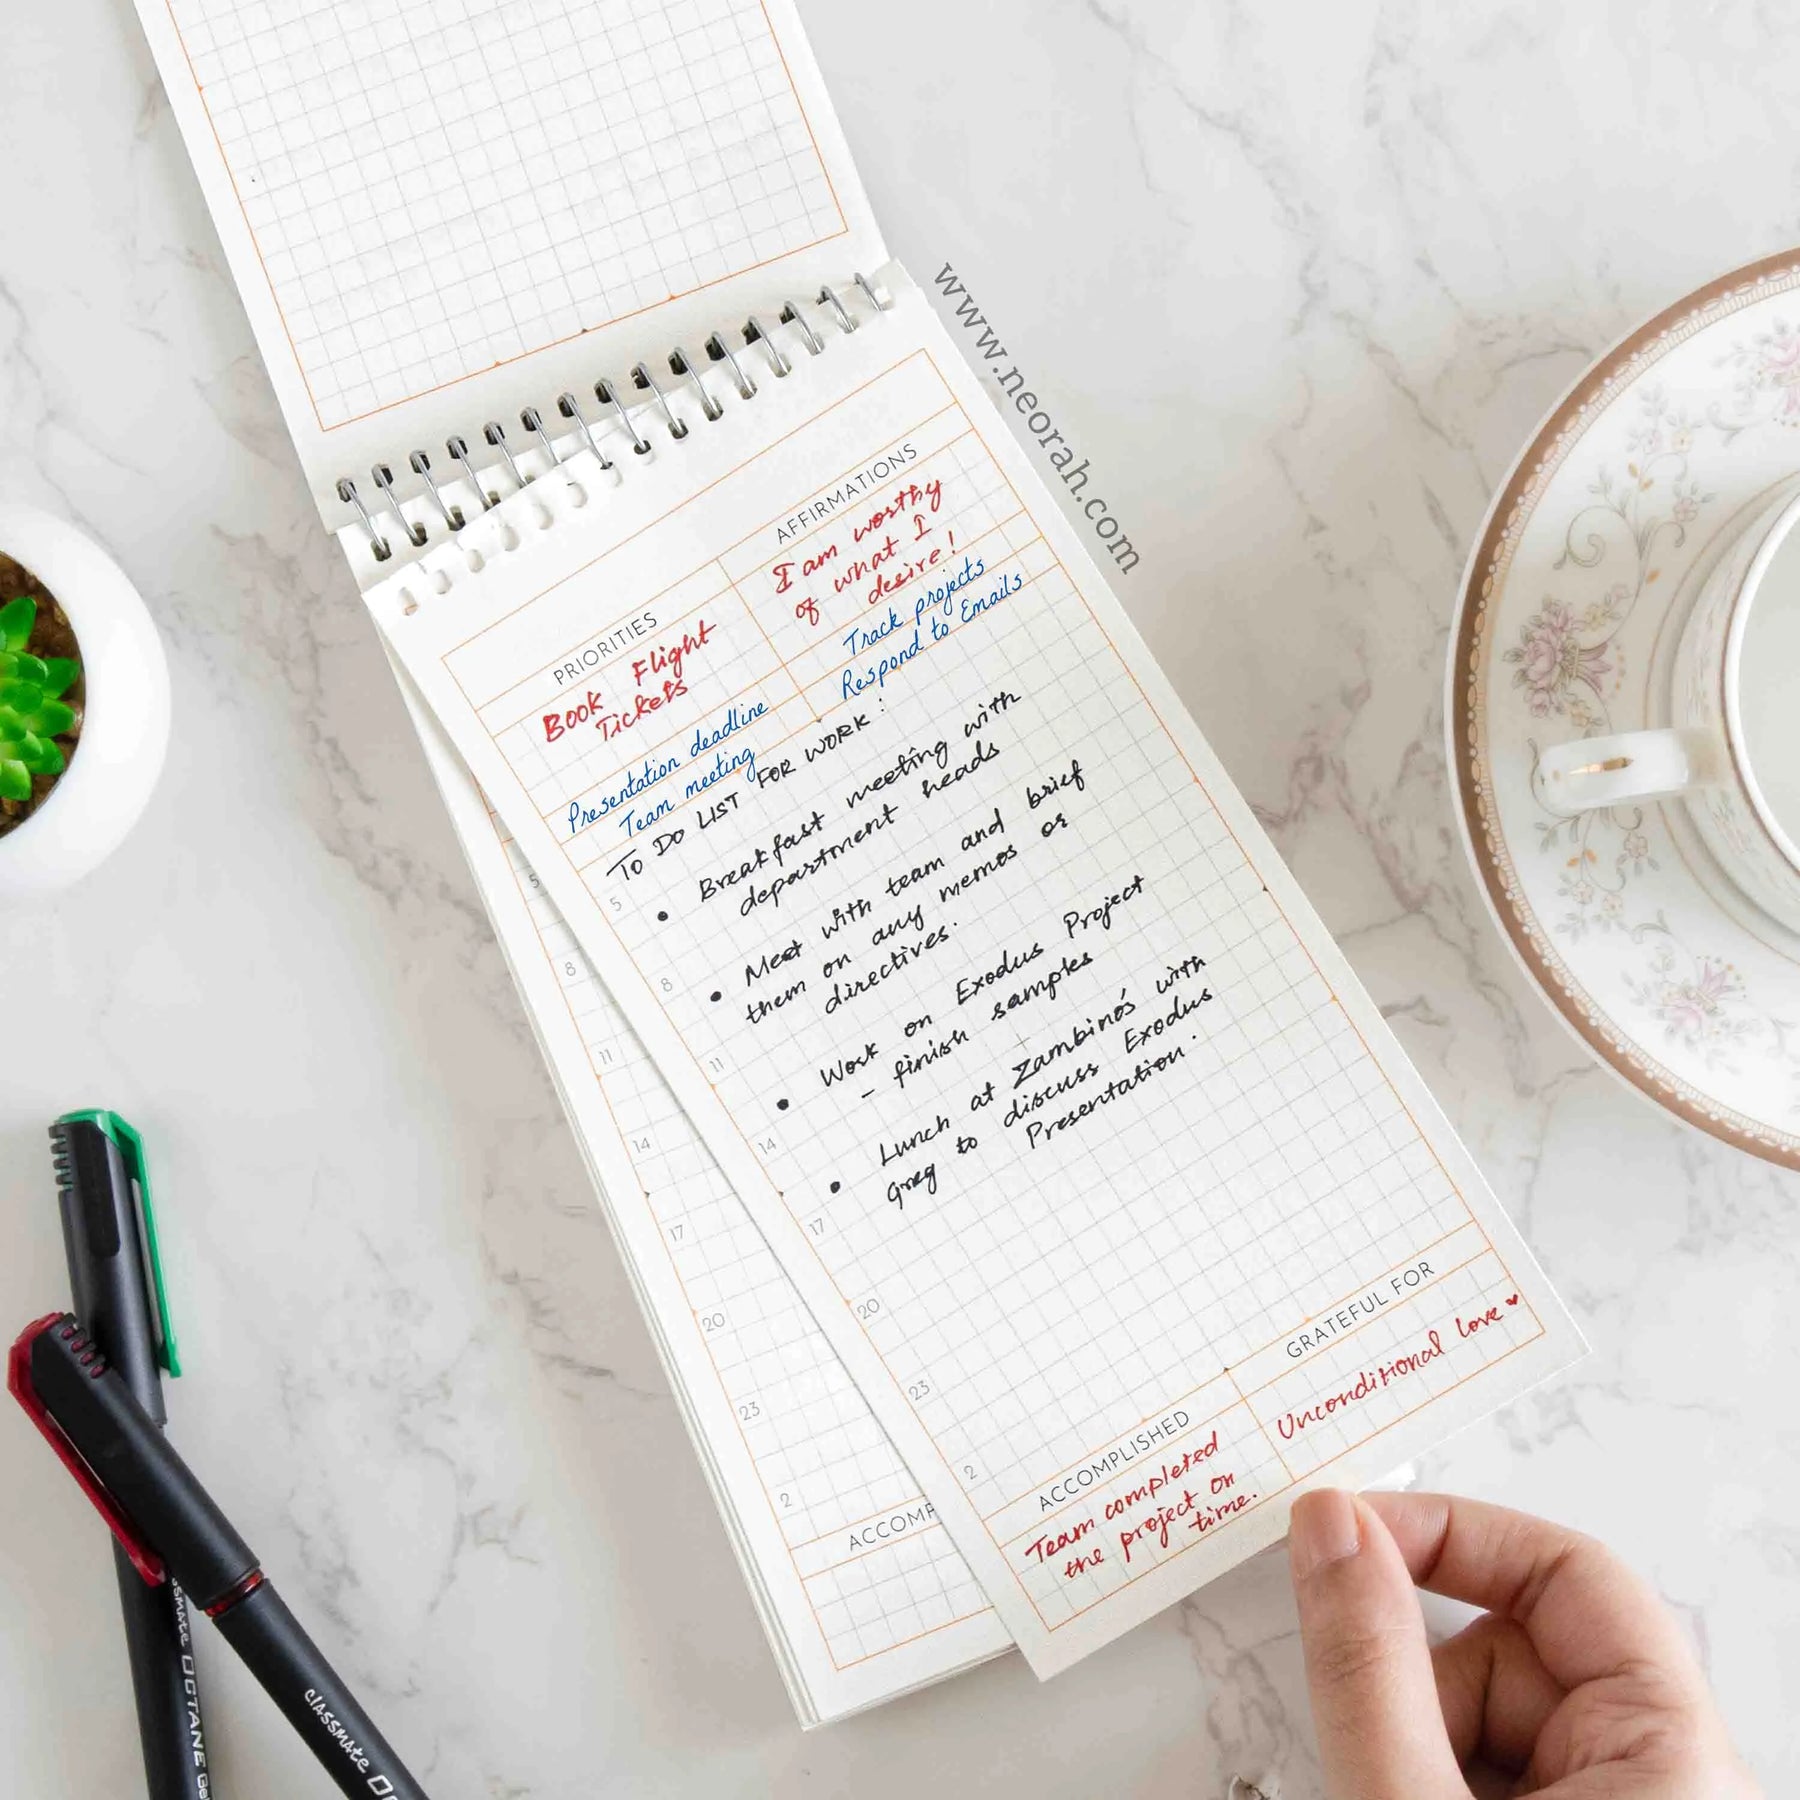 www.neorah.com
PRIORITIES
BOOK Flight
Tickets
Presentation deadline
Team meeting
AFFIRMATIONS
I am worthy
of what I
desire!
Track projects
Respond to Emails
TO DO LIST FOR WORK :
• Breakfast meeting with
department heads
• Meet with team and brief
them on any memos or
directives.
• Work on Exodus Project
– finish samples
• Lunch at Zambino's with
Greg to discuss Exodus
Presentation.
5
8
11
14
17
20
23
2
ACCOMPLISHED
Team completed
the project on
time.
GRATEFUL FOR
Unconditional love ♥
5
8
11
14
17
20
23
2
ACCOMP
classmate OCTANE
classmate